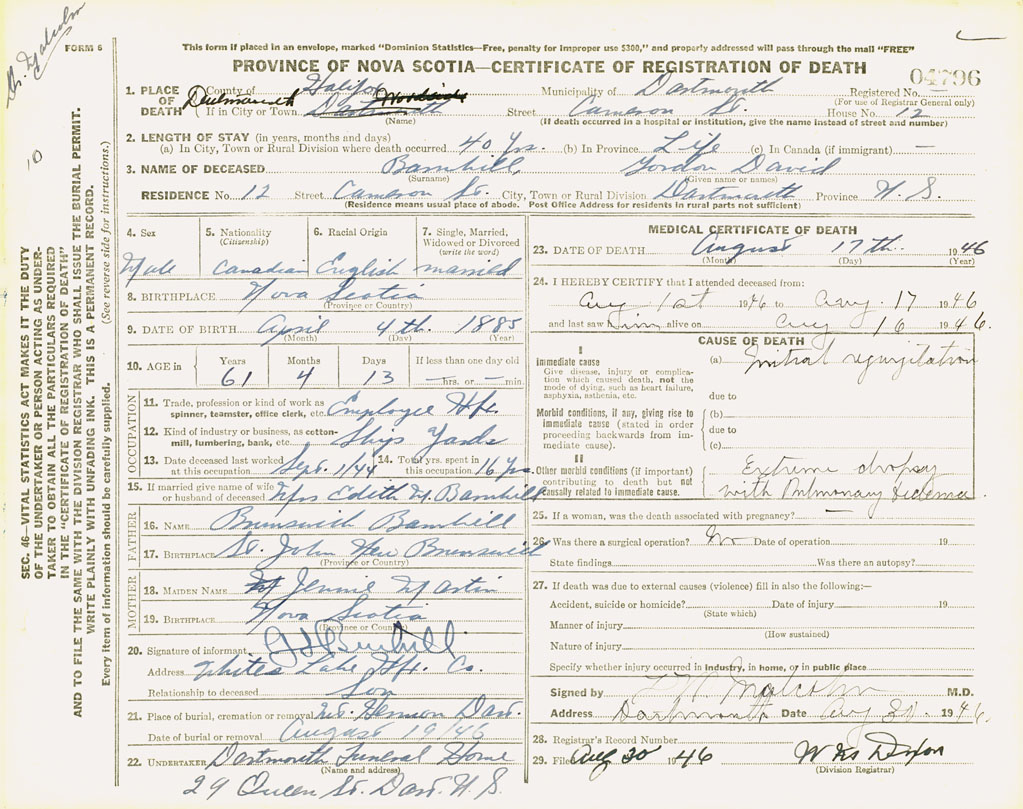 Dr. Malcolm
10
FORM 6
This form if placed in an envelope, marked "Dominion Statistics—Free, penalty for improper use $300," and properly addressed will pass through the mail "FREE"
PROVINCE OF NOVA SCOTIA—CERTIFICATE OF REGISTRATION OF DEATH
04796
1. PLACE OF DEATH
County of Halifax Municipality of Dartmouth Registered No.
(For use of Registrar General only)
If in City or Town Dartmouth Woodside Street Cameron St. House No. 12
(Name) (If death occurred in a hospital or institution, give the name instead of street and number)
2. LENGTH OF STAY (in years, months and days)
(a) In City, Town or Rural Division where death occurred 40 Yrs. (b) In Province Life (c) In Canada (if immigrant) —
3. NAME OF DECEASED Barnhill Gordon David
(Surname) (Given name or names)
RESIDENCE No. 12 Street Cameron St. City, Town or Rural Division Dartmouth Province N.S.
(Residence means usual place of abode. Post Office Address for residents in rural parts not sufficient)
SEC. 46—VITAL STATISTICS ACT MAKES IT THE DUTY
OF THE UNDERTAKER OR PERSON ACTING AS UNDER-
TAKER TO OBTAIN ALL THE PARTICULARS REQUIRED
IN THE "CERTIFICATE OF REGISTRATION OF DEATH"
AND TO FILE THE SAME WITH THE DIVISION REGISTRAR WHO SHALL ISSUE THE BURIAL PERMIT.
WRITE PLAINLY WITH UNFADING INK. THIS IS A PERMANENT RECORD.
Every item of information should be carefully supplied. (See reverse side for instructions.)
4. Sex 5. Nationality (Citizenship) 6. Racial Origin 7. Single, Married, Widowed or Divorced (write the word)
Male Canadian English married
8. BIRTHPLACE Nova Scotia
(Province or Country)
9. DATE OF BIRTH April 4th. 1885
(Month) (Day) (Year)
10. AGE in Years Months Days If less than one day old
61 4 13 — hrs. or — min.
OCCUPATION
11. Trade, profession or kind of work as spinner, teamster, office clerk, etc. Employee Hfx.
12. Kind of industry or business, as cotton-mill, lumbering, bank, etc. Ships Yards
13. Date deceased last worked at this occupation Sept. 1/44 14. Total yrs. spent in this occupation 16 Yrs.
15. If married give name of wife or husband of deceased Mrs Edith M. Barnhill
FATHER
16. NAME Brunswick Barnhill
17. BIRTHPLACE St. John New Brunswick
(Province or Country)
MOTHER
18. MAIDEN NAME Jennie Martin
19. BIRTHPLACE Nova Scotia
(Province or Country)
20. Signature of informant Barnhill
Address Whites Lake Hfx. Co.
Relationship to deceased Son
21. Place of burial, cremation or removal Mt. Hermon Dart.
Date of burial or removal August 19/46
22. UNDERTAKER Dartmouth Funeral Home
(Name and address)
29 Queen St. Dart. N.S.
MEDICAL CERTIFICATE OF DEATH
23. DATE OF DEATH August 17th. 1946
(Month) (Day) (Year)
24. I HEREBY CERTIFY that I attended deceased from:
Aug 1st 1946 to Aug. 17 1946
and last saw him alive on Aug 16 1946.
CAUSE OF DEATH
I
Immediate cause (a) Mitral regurgitation
Give disease, injury or complica-
tion which caused death, not the
mode of dying, such as heart failure,
asphyxia, asthenia, etc. due to
Morbid conditions, if any, giving rise to (b)
immediate cause (stated in order due to
proceeding backwards from im- (c)
mediate cause).
II
Other morbid conditions (if important) Extreme dropsy
contributing to death but not
causally related to immediate cause. with Pulmonary Edema.
25. If a woman, was the death associated with pregnancy? —
26. Was there a surgical operation? No Date of operation 19
State findings Was there an autopsy?
27. If death was due to external causes (violence) fill in also the following:—
Accident, suicide or homicide? Date of injury 19
(State which)
Manner of injury
(How sustained)
Nature of injury
Specify whether injury occurred in industry, in home, or in public place
Signed by Malcolm M.D.
Address Dartmouth Date Aug 30. 1946.
28. Registrar's Record Number
29. Filed Aug 30 1946 Dixon
(Division Registrar)